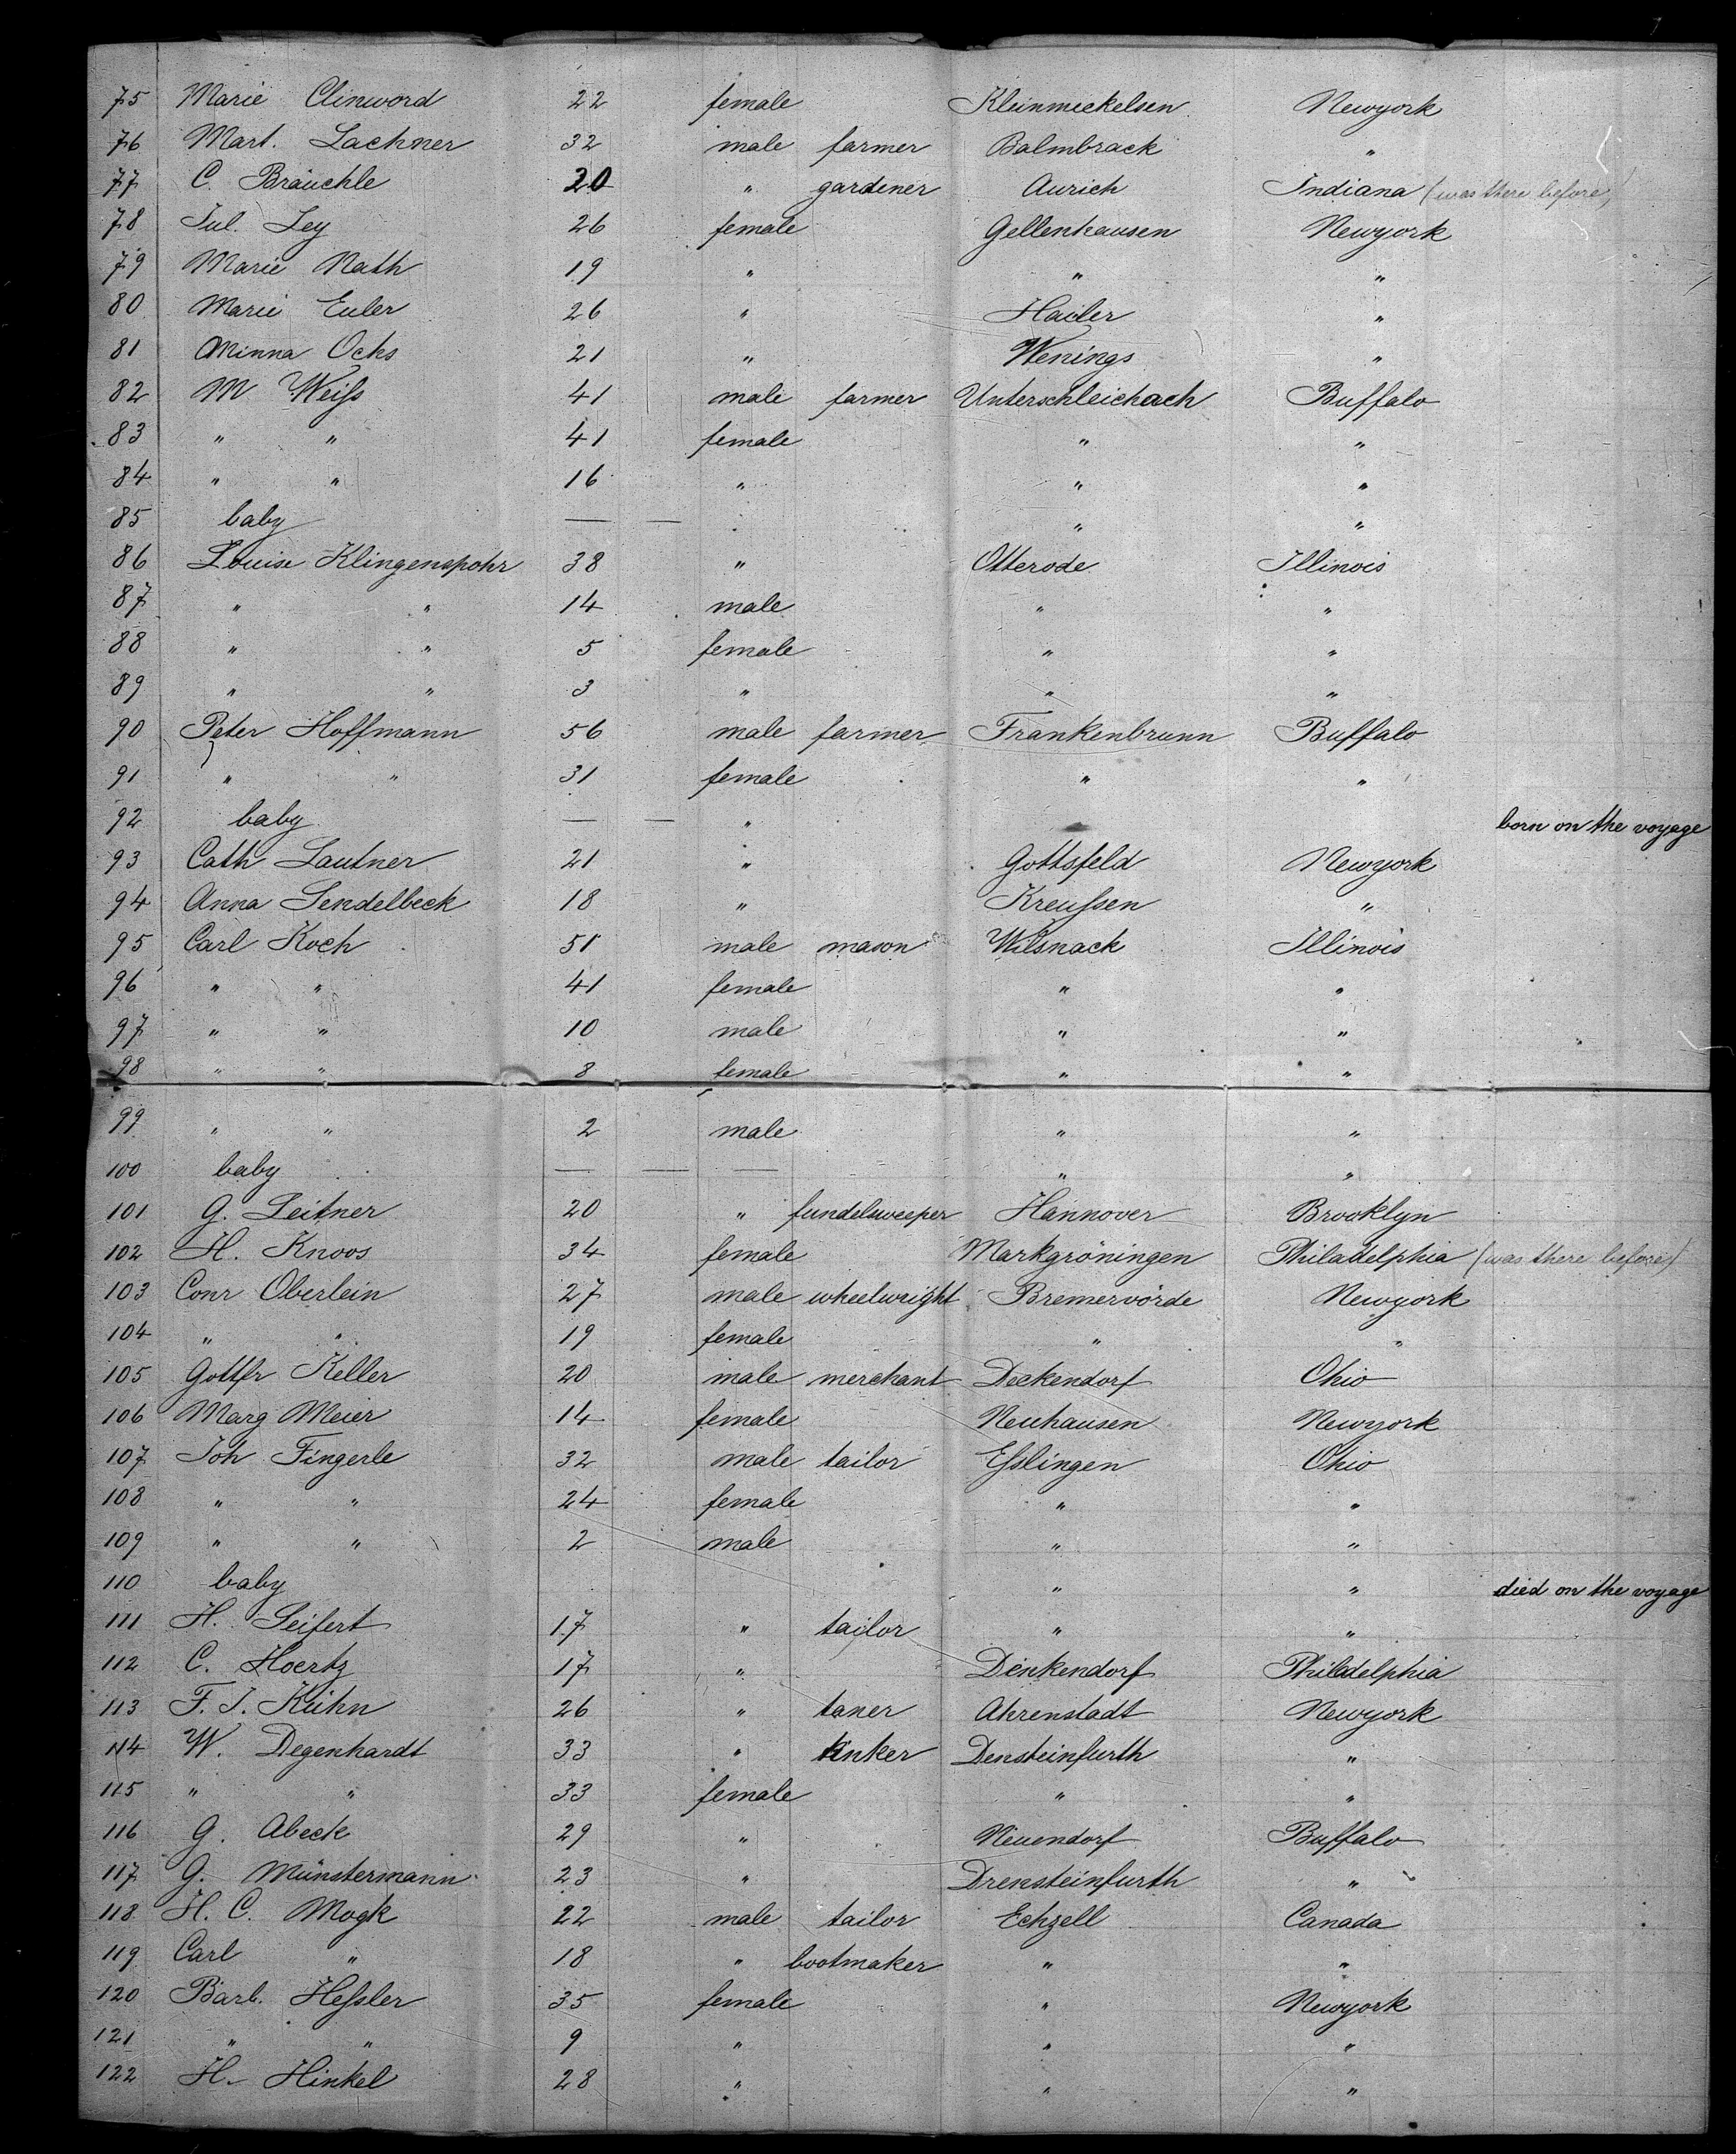 75 Marie Clinword 22 female Kleinmeckelsen Newyork
76 Mart. Lachner 32 male farmer Balmbrack "
77 C. Bräuchle 20 " gardener Aurich Indiana (was there before)
78 Jul. Ley 26 female Gellenhausen Newyork
79 Marie Nath 19 " " "
80 Marie Euler 26 " Hailer "
81 Minna Ochs 21 " Wenings "
82 M Weiſs 41 male farmer Unterschleichach Buffalo
83 " " 41 female " "
84 " " 16 " " "
85 baby — — " "
86 Louise Klingenspohr 38 " Otterode Illinois
87 " " 14 male " "
88 " " 5 female " "
89 " " 3 " " "
90 Peter Hoffmann 56 male farmer Frankenbrunn Buffalo
91 " " 31 female " "
92 baby — — " born on the voyage
93 Cath Lautner 21 " Gottsfeld Newyork
94 Anna Sendelbeck 18 " Kreuſsen "
95 Carl Koch 51 male mason Wilsnack Illinois
96 " " 41 female " "
97 " " 10 male " "
98 " " 8 female " "
99 " " 2 male " "
100 baby — — — " "
101 G. Leitner 20 " Hannover Brooklyn
102 H. Knoos 34 female Markgröningen Philadelphia (was there before)
103 Conr Oberlein 27 male wheelwright Bremervörde Newyork
104 " " 19 female " "
105 Gottfr Keller 20 male merchant Deckendorf Ohio
106 Marg Meier 14 female Neuhausen Newyork
107 Joh Fingerle 32 male tailor Eſslingen Ohio
108 " " 24 female " "
109 " " 2 male " "
110 baby " " died on the voyage
111 H. Seifert 17 " tailor " "
112 C. Hoertz 17 " Denkendorf Philadelphia
113 F. J. Kühn 26 " taner Ahrenstadt Newyork
114 W. Degenhardt 33 " tinker Densteinfurth "
115 " " 33 female " "
116 G. Abeck 29 " Neuendorf Buffalo
117 G. Münstermann 23 " Drensteinfurth "
118 H. C. Mogk 22 male tailor Echzell Canada
119 Carl " 18 " bootmaker " "
120 Barb. Heſsler 35 female " Newyork
121 " " 9 " " "
122 H. Hinkel 28 " " "